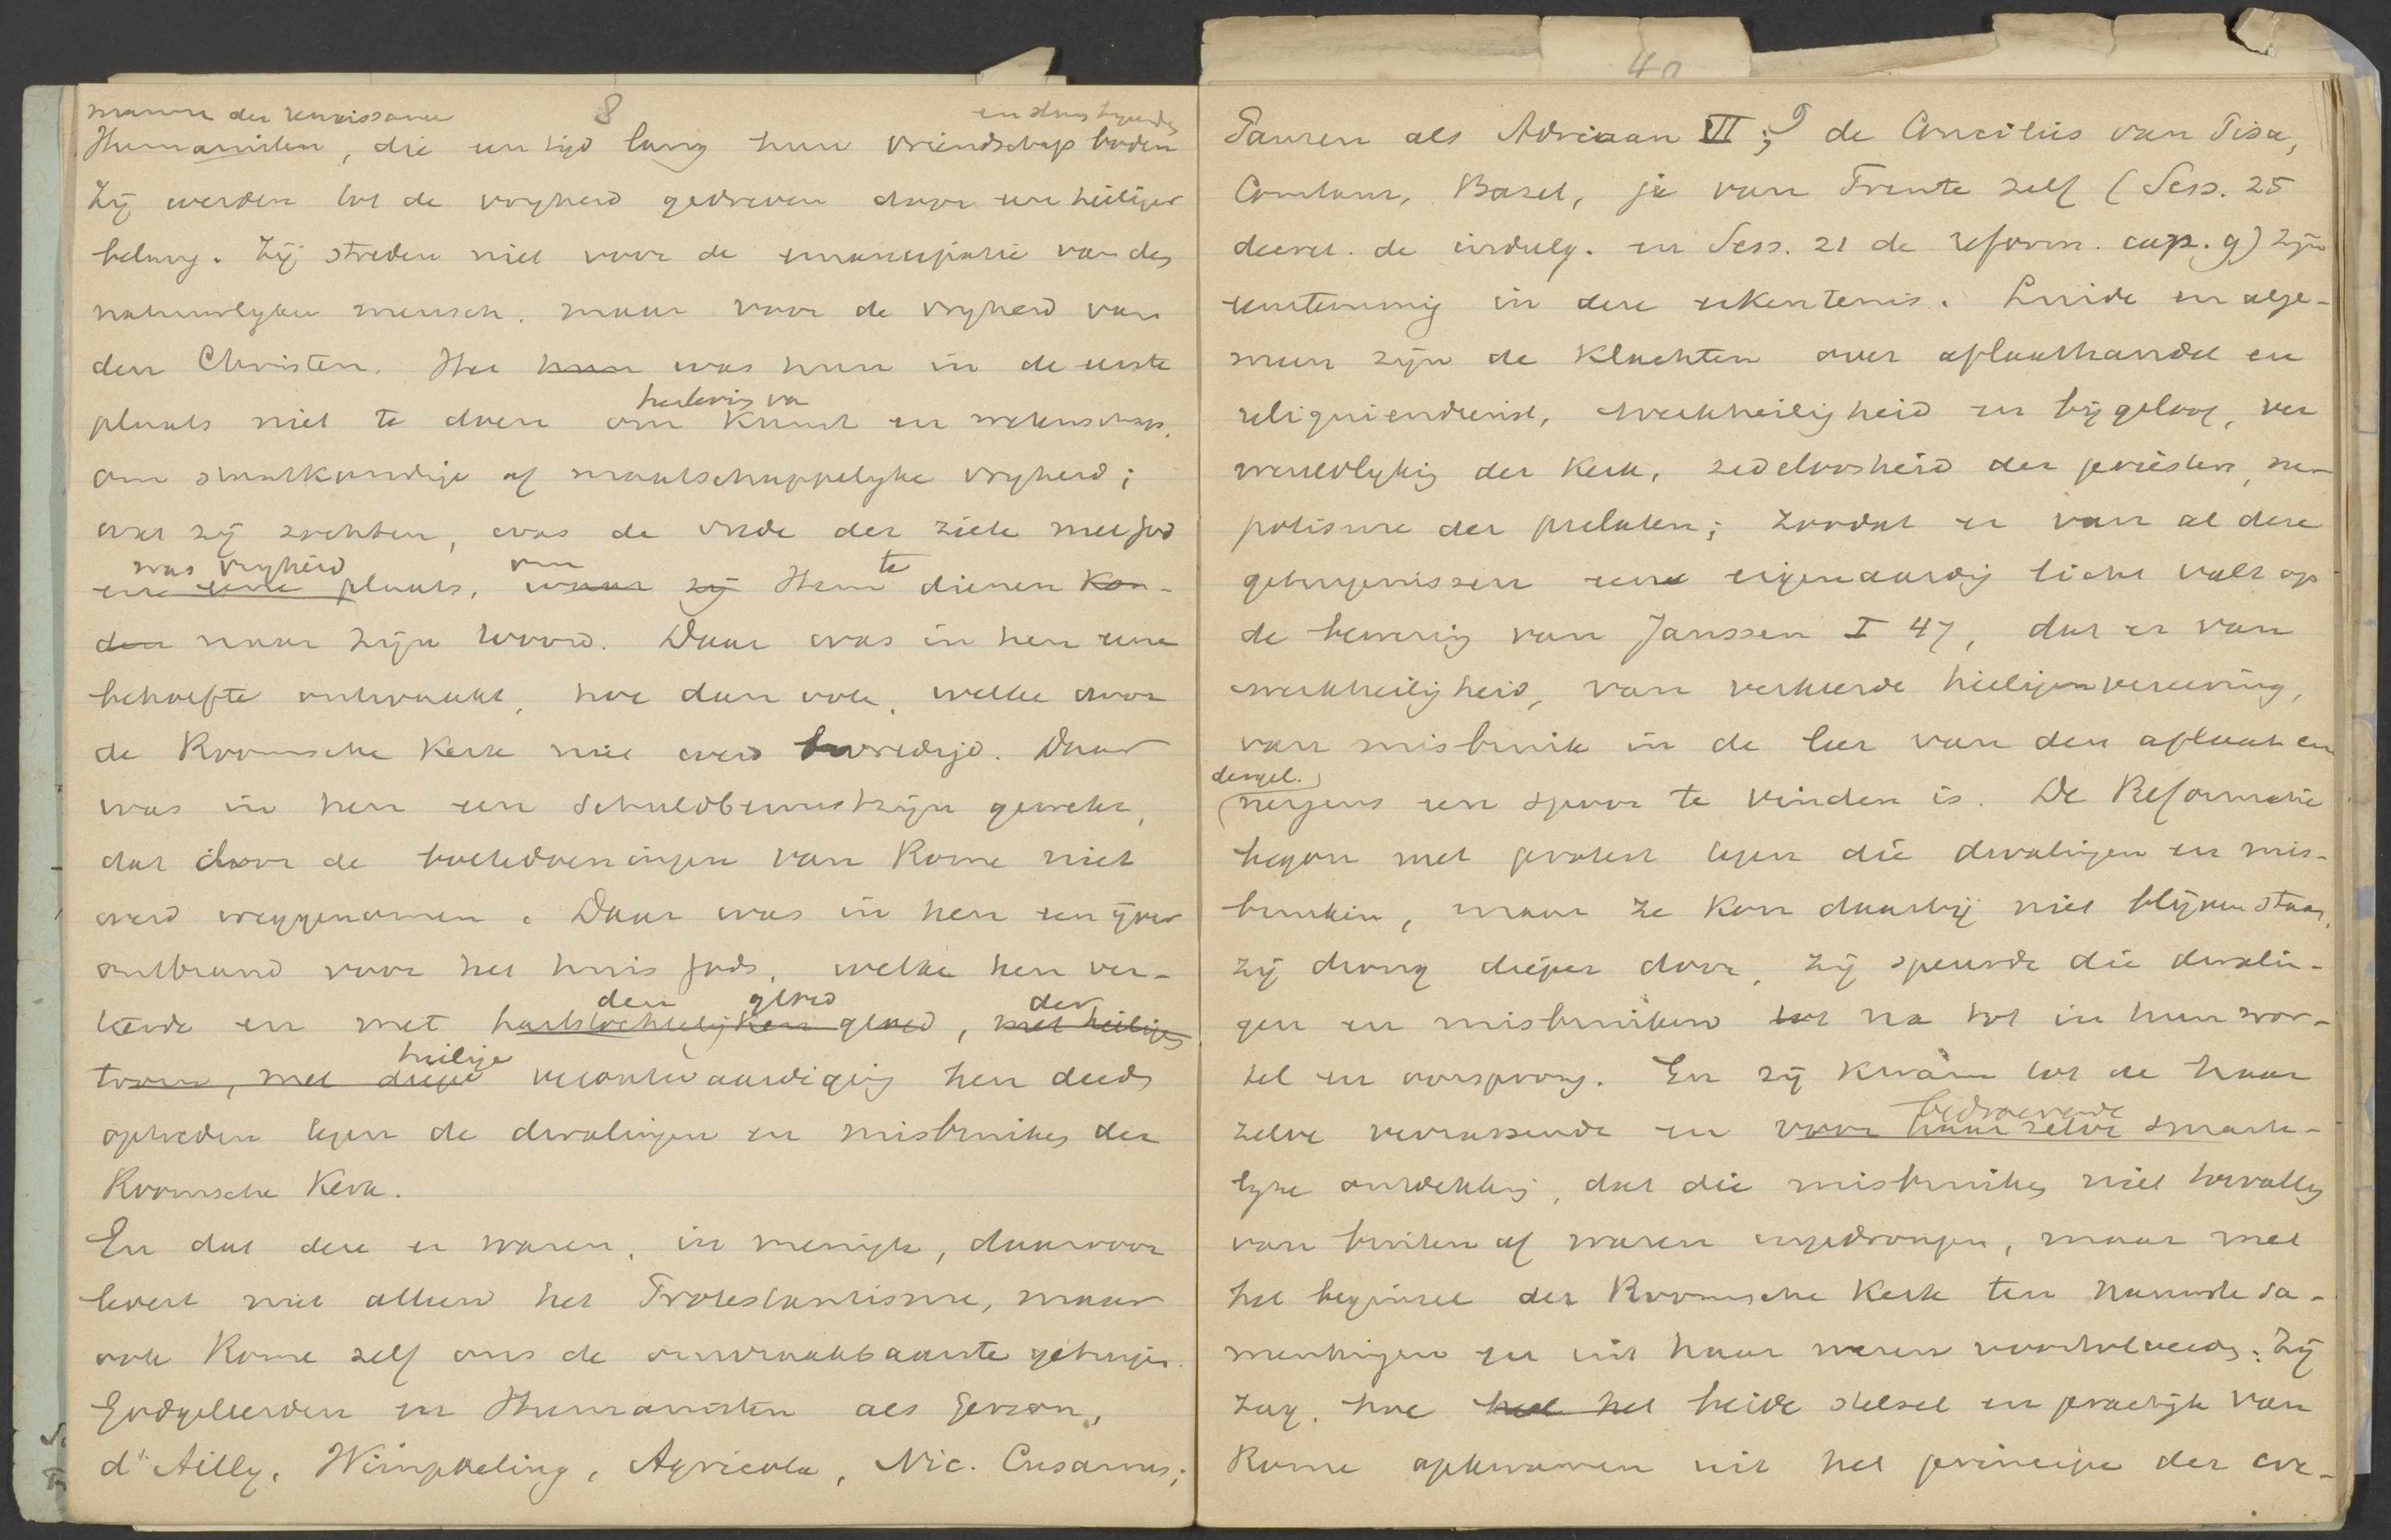 mannen der renaissance 8 en steun
Humanisten, die een tijd lang hun vriendschap boden
Zij werden tot de vryheid gedreven door een heiliger
belang. Zij streden niet voor de emancipatie van den
natuurlyken mensch, maar voor de vryheid van
den Christen. Het hun was hun in de eerste
herleving van
plaats niet te doen om Kunst en wetenschap,
om staatkundige of maatschappelyke vryheid;
wat zij zochten, was de vrede der ziele met God
was vryheid om te
en eene plaats, waar zij Hem dienen kon-
den naar Zijn Woord. Daar was in hen eene
behoefte ontwaakt, hoe dan ook, welke door
de Roomsche Kerk niet werd bevredigd. Daar
was in hen een schuldbewustzijn gewekt,
dat door de boetedoeningen van Rome niet
werd weggenomen. Daar was in hen een ijver
ontbrand voor het huis Gods, welke hen ver-
den gloed der
teerde en met hartstochtelijken gloed, met heiligen
heilige
toorn, met diepe verontwaardiging hen deed
optreden tegen de dwalingen en misbruiken der
Roomsche Kerk.
En dat deze er waren, in menigte, daarvoor
levert niet alleen het Protestantisme, maar
ook Rome zelf ons de onwraakbaarste getuigen.
Godgeleerden en Humanisten als Gerson,
d'Ailly, Wimpheling, Agricola, Nic. Cusanus;
40
Pausen als Adriaan VI; de Conciliis van Pisa,
Constanz, Bazel, ja van Trente zelf (Sess. 25
decret. de indulg. en Sess. 21 de reform. cap. 9) zijn
eenstemmig in deze erkentenis. Luide en alge-
meen zijn de Klachten over aflaathandel en
reliquiendienst, werkheiligheid en bijgeloof, ver
wereldlyking der Kerk, zedeloosheid der priesters, ne-
potisme der prelaten; zoodat er van al deze
getuigenissen een eigenaardig licht valt op
de bewering van Janssen I 47, dat er van
werkheiligheid, van verkeerde heiligenvereering,
van misbruik in de leer van den aflaat en
dergel.
nergens een spoor te vinden is. De Reformatie
begon met protest tegen die dwalingen en mis-
bruiken, maar ze kon daarbij niet blijven staan,
zij drong dieper door, zij speurde die dwalin-
gen en misbruiken tot na tot in hun wor-
tel en oorsprong. En zij kwam tot de haar
bedroevende
zelve verrassende en voor haar zelve smarte-
lyke ontdekking, dat die misbruiken niet toevallig
van buiten af waren ingedrongen, maar met
het beginsel der Roomsche Kerk ten nauwste sa-
menhingen en uit haar waren voortvloeid. Zij
zag, hoe heel het beide stelsel en practijk van
Rome opkwamen uit het principe der cor-